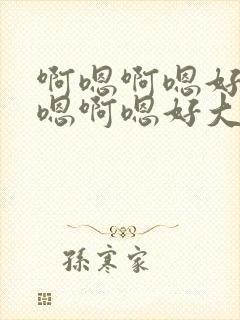 啊嗯啊嗯好
嗯啊嗯好大
孫寒家